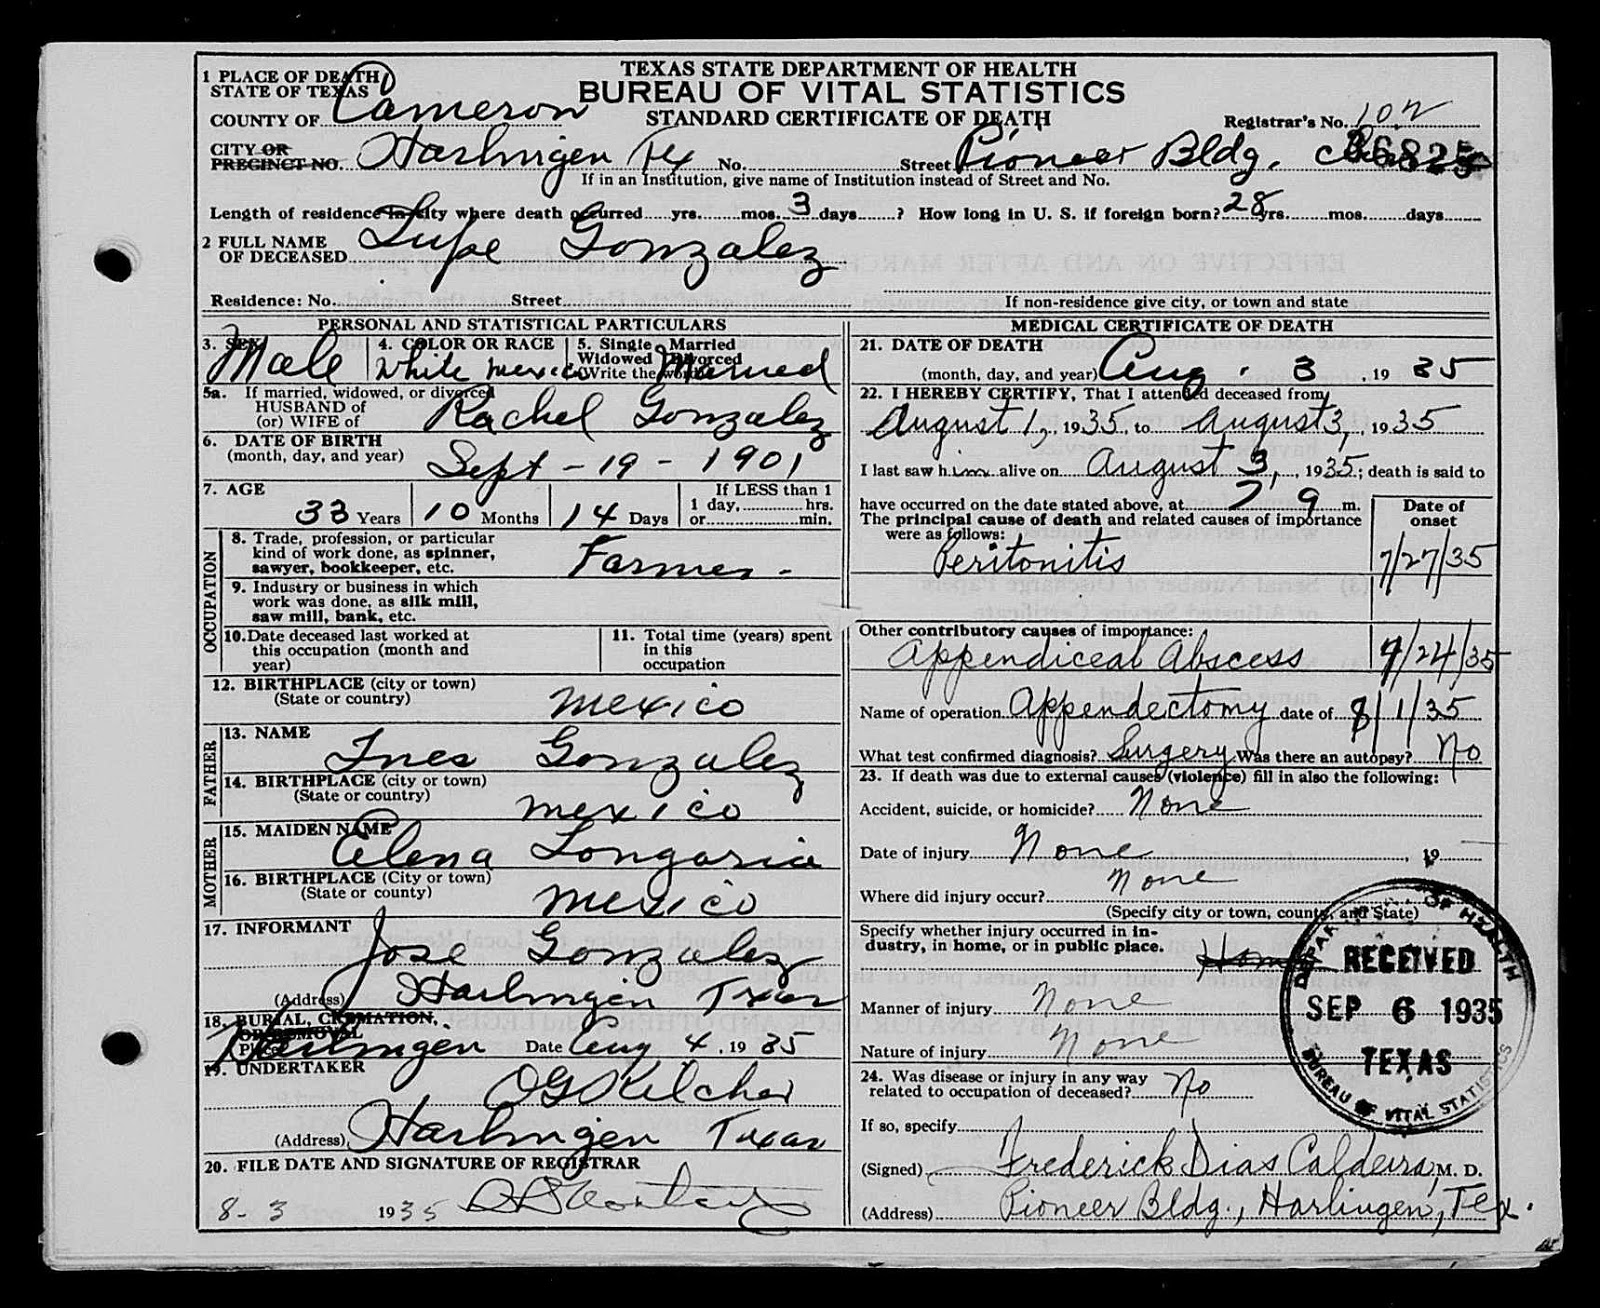 TEXAS STATE DEPARTMENT OF HEALTH
BUREAU OF VITAL STATISTICS
STANDARD CERTIFICATE OF DEATH
1 PLACE OF DEATH
STATE OF TEXAS
COUNTY OF Cameron
Registrar's No. 102
CITY OR PRECINCT NO. Harlingen Tex No. Street Pioneer Bldg.
If in an Institution, give name of Institution instead of Street and No.
Length of residence in city where death occurred yrs. mos. 3 days ? How long in U. S. if foreign born? 28 yrs. mos. days
2 FULL NAME OF DECEASED Lupe Gonzalez
Residence: No. Street
If non-residence give city, or town and state
PERSONAL AND STATISTICAL PARTICULARS
3. SEX Male
4. COLOR OR RACE White
5. Single Married Widowed Divorced (Write the word) Married
5a. If married, widowed, or divorced
HUSBAND of
(or) WIFE of Rachel Gonzalez
6. DATE OF BIRTH
(month, day, and year) Sept - 19 - 1901
7. AGE 33 Years 10 Months 14 Days
If LESS than 1
1 day, hrs.
or min.
OCCUPATION
8. Trade, profession, or particular
kind of work done, as spinner,
sawyer, bookkeeper, etc. Farmer -
9. Industry or business in which
work was done, as silk mill,
saw mill, bank, etc.
10. Date deceased last worked at
this occupation (month and
year)
11. Total time (years) spent
in this
occupation
12. BIRTHPLACE (city or town)
(State or country) Mexico
FATHER
13. NAME Ines Gonzalez
14. BIRTHPLACE (city or town)
(State or country) Mexico
MOTHER
15. MAIDEN NAME Elena Longoria
16. BIRTHPLACE (City or town)
(State or county) Mexico
17. INFORMANT Jose Gonzalez
(Address) Harlingen Texas
18. BURIAL, CREMATION,
OR REMOVAL
Place Harlingen Date Aug 4, 1935
19. UNDERTAKER
(Address) Harlingen Texas
20. FILE DATE AND SIGNATURE OF REGISTRAR
8-3 1935
MEDICAL CERTIFICATE OF DEATH
21. DATE OF DEATH
(month, day, and year) Aug. 3, 1935
22. I HEREBY CERTIFY, That I attended deceased from
August 1, 1935, to August 3, 1935
I last saw him alive on August 3, 1935; death is said to
have occurred on the date stated above, at 7 m.
The principal cause of death and related causes of importance
were as follows:
Date of
onset
Peritonitis 7/27/35
Other contributory causes of importance:
Appendiceal Abscess 7/24/35
Name of operation Appendectomy date of 8/1/35
What test confirmed diagnosis? Surgery Was there an autopsy? No
23. If death was due to external causes (violence) fill in also the following:
Accident, suicide, or homicide? None
Date of injury None, 19
Where did injury occur? None
(Specify city or town, county, and State)
Specify whether injury occurred in in-
dustry, in home, or in public place. Home
Manner of injury None
Nature of injury None
24. Was disease or injury in any way
related to occupation of deceased? No
If so, specify
(Signed) Frederick Dias Caldeira, M. D.
(Address) Pioneer Bldg., Harlingen, Tex.
DEPARTMENT OF HEALTH
RECEIVED
SEP 6 1935
TEXAS
BUREAU OF VITAL STATISTICS